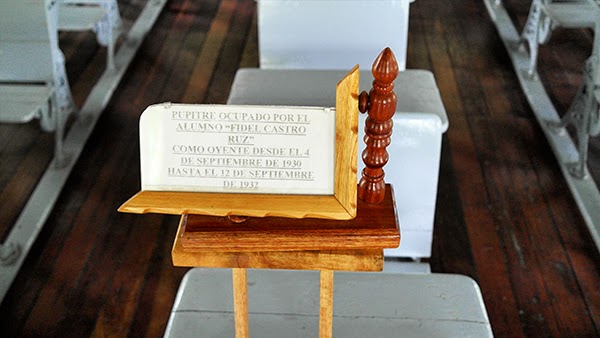 PUPITRE OCUPADO POR EL
ALUMNO “FIDEL CASTRO
RUZ”
COMO OYENTE DESDE EL 4
DE SEPTIEMBRE DE 1930
HASTA EL 12 DE SEPTIEMBRE
DE 1932